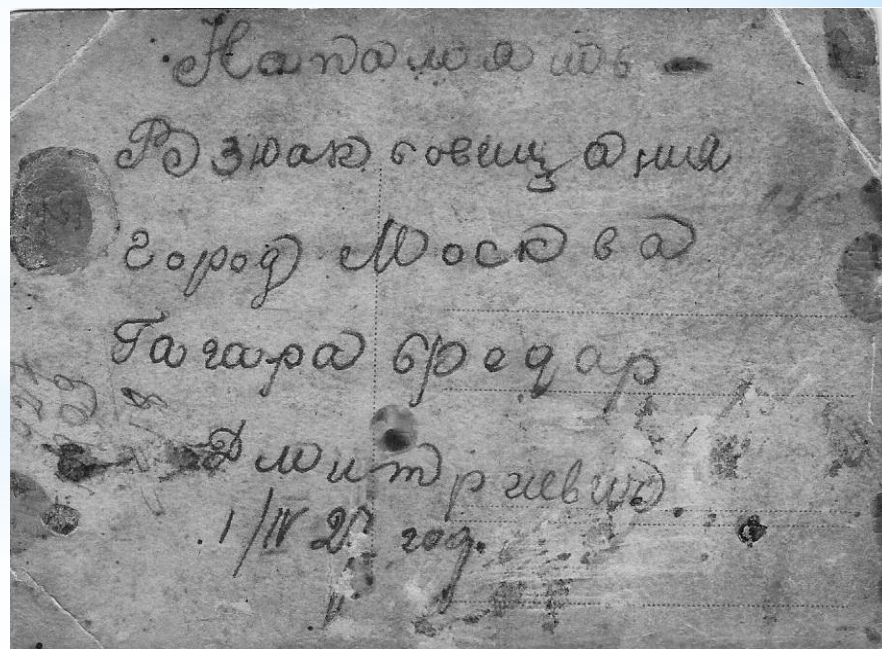 Напамять -
В знак совещания
город Москва
Гагара Федар
Дмитриевич.
1/IV 27 год.